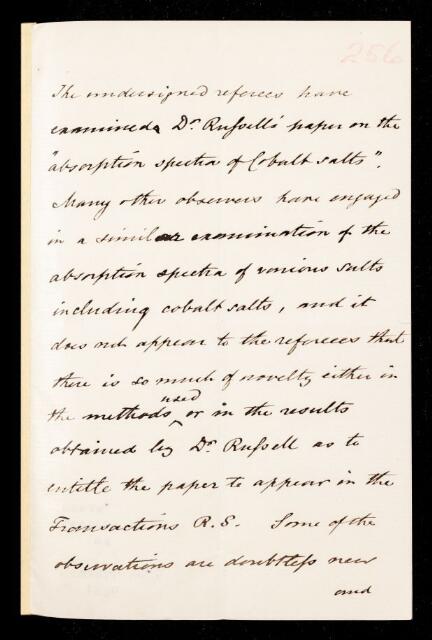 256
The undersigned referees have
examined Dr. Russell's paper on the
"absorption spectra of Cobalt salts".
Many other observers have engaged
in a similar examination of the
absorption spectra of various salts
including cobalt salts, and it
does not appear to the referees that
there is so much of novelty either in
used
the methods or in the results
obtained by Dr. Russell as to
entitle the paper to appear in the
Transactions R.S. Some of the
observations are doubtless new
and